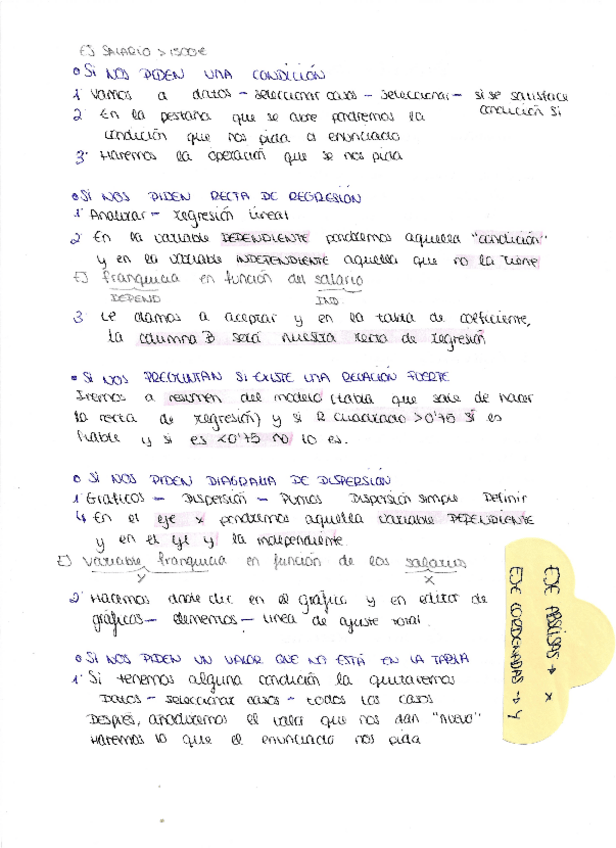 EJ SALARIO > 1500€
• Si NOS PIDEN UNA CONDICIÓN
1· Vamos a datos - seleccionar casos - seleccionar - si se satisface condición si
2· En la pestaña que se abre pondremos la
condición que nos pida el enunciado
3· Haremos la operación que se nos pida
• Si NOS PIDEN RECTA DE REGRESIÓN
1· Analizar - regresión lineal
2· En la variable DEPENDIENTE pondremos aquella "condición"
y en la variable INDEPENDIENTE aquella que no la tiene
EJ franquicia en función del salario
DEPEND IND.
3· Le damos a aceptar y en la tabla de coeficiente,
la columna B será nuestra recta de regresión
• Si NOS PREGUNTAN SI EXISTE UNA RELACIÓN FUERTE
Iremos a resumen del modelo (tabla que sale de hacer
la recta de regresión) y si R cuadrado >0'75 SÍ es
fiable y si es <0'75 no lo es.
• Si NOS PIDEN DIAGRAMA DE DISPERSIÓN
1· Gráficos - Dispersión - Puntos Dispersión simple Definir
↳ En el eje x pondremos aquella variable DEPENDIENTE
y en el eje y la independiente.
EJ variable franquicia en función de los salarios
y x
2· Hacemos doble clic en el gráfico y en editor de
gráficos - elementos - linea de ajuste total.
• Si NOS PIDEN UN VALOR QUE NO ESTÁ EN LA TABLA
1· Si tenemos alguna condición la quitaremos
Datos - seleccionar casos - todos los casos
Después, añadiremos el valor que nos dan "nuevo"
Haremos lo que el enunciado nos pida
EJE ABSCISAS → x
EJE COORDENADAS → y